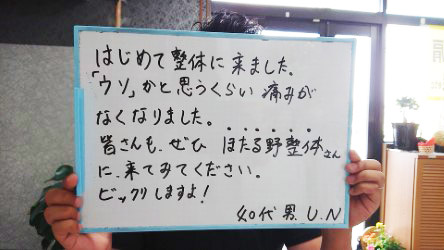 はじめて整体に来ました。
「ウソ」かと思うくらい痛みが
なくなりました。
皆さんも、ぜひ ほたる野整体さん
に、来てみてください。
ビックリしますよ!
40代 男 U.N